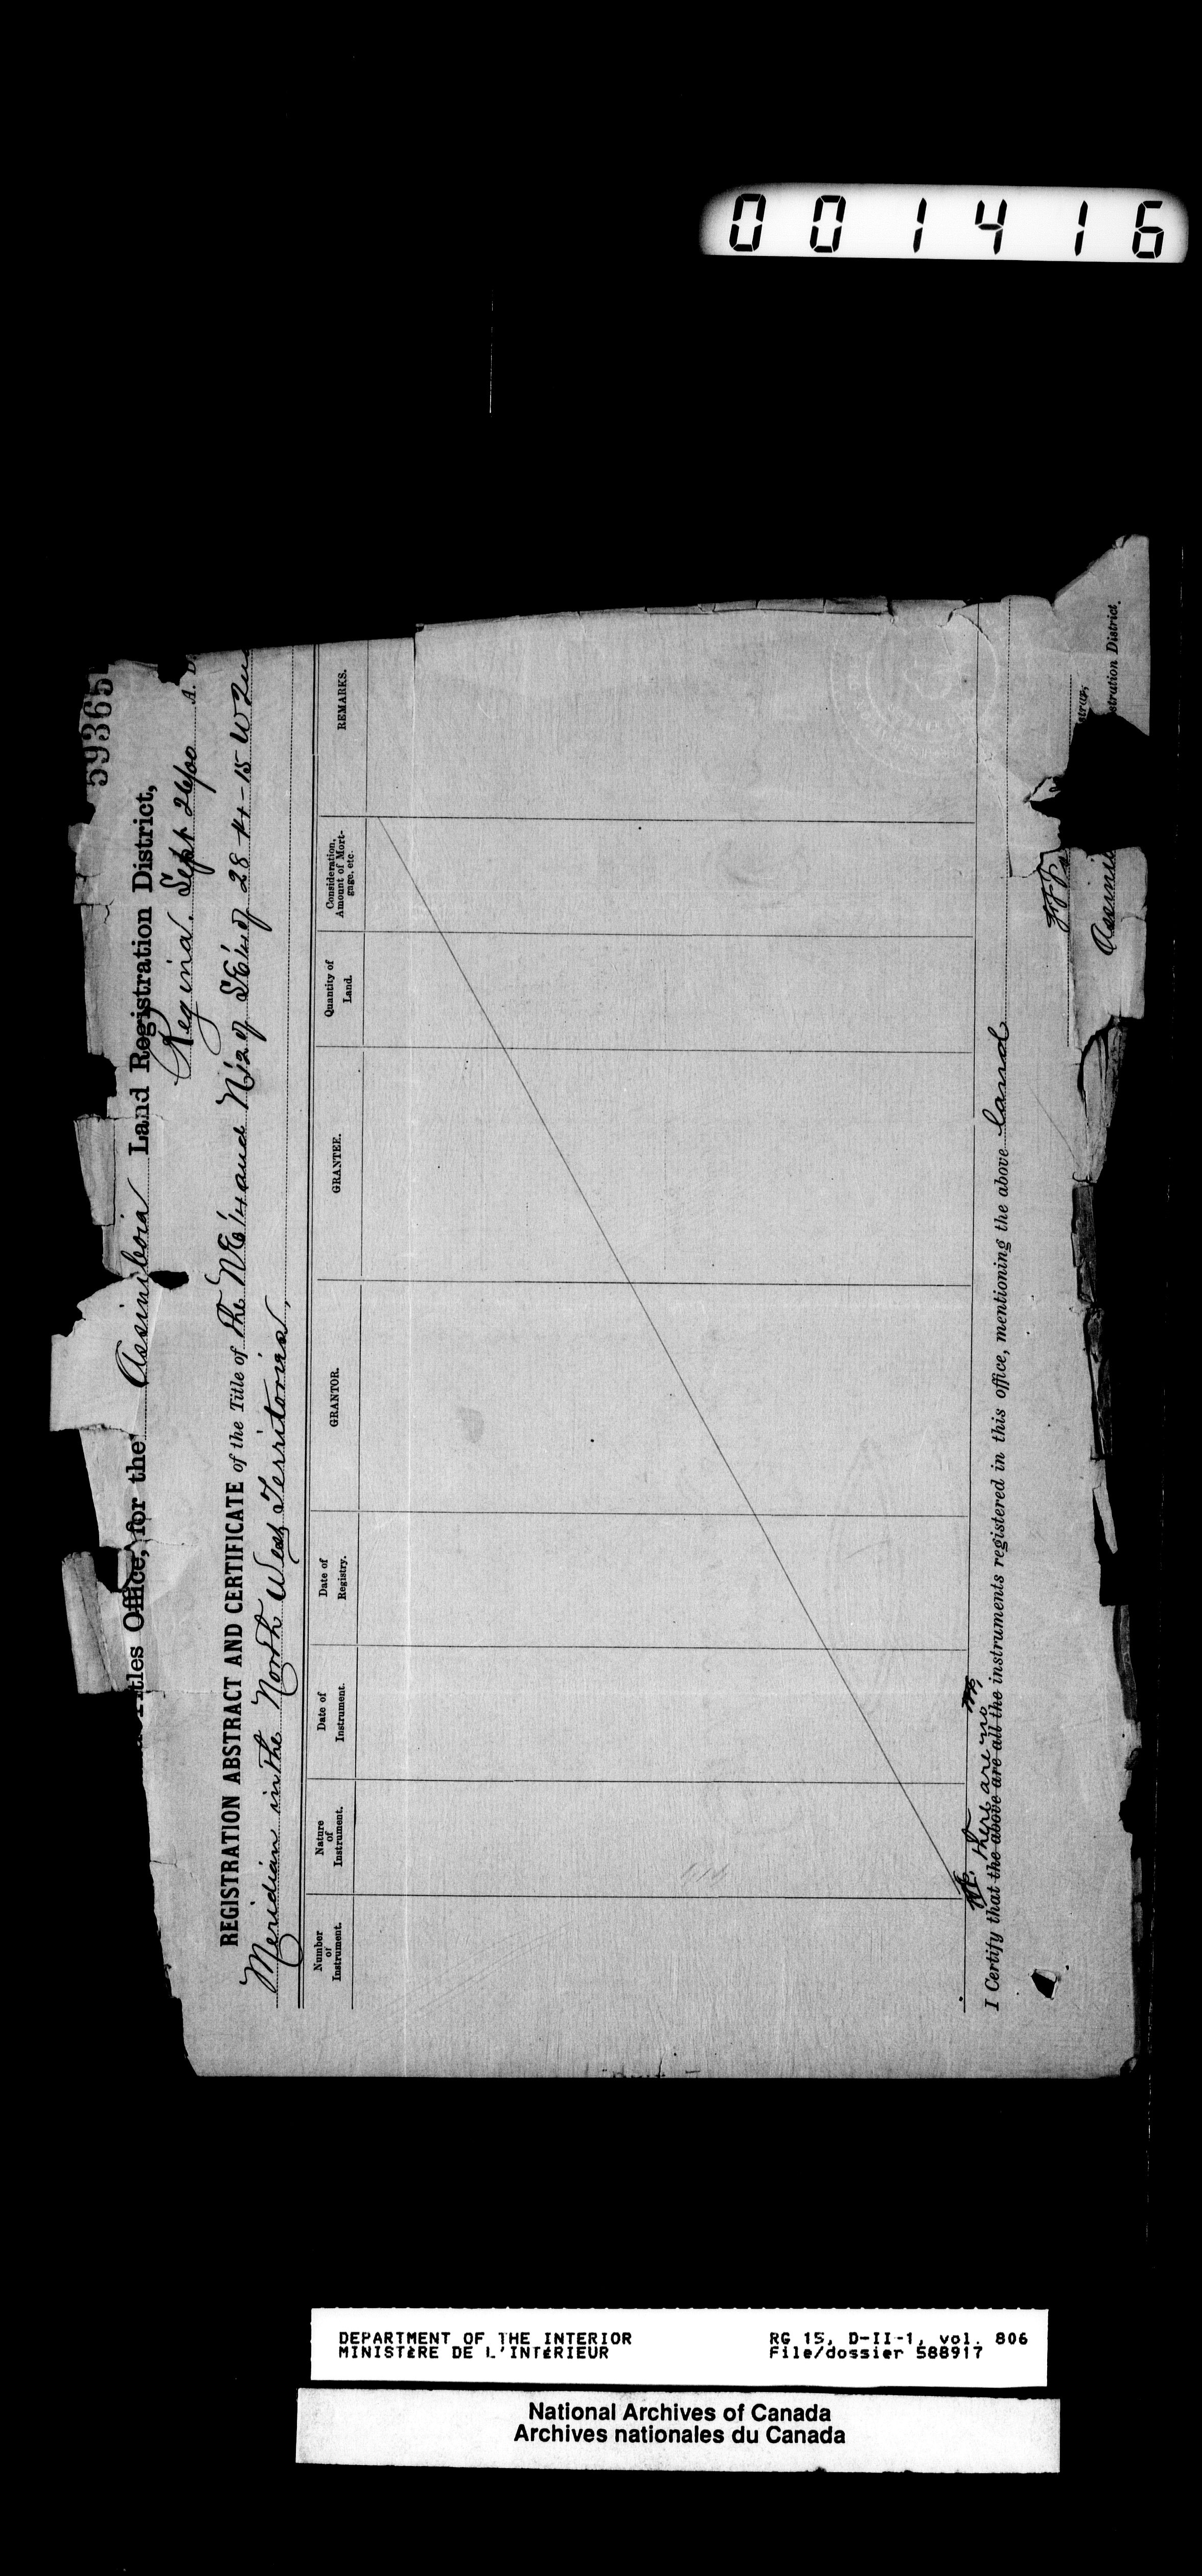 001416
59365
Titles Office, for the Assiniboia Land Registration District,
Regina. Sept 26/00 A. D.
REGISTRATION ABSTRACT AND CERTIFICATE of the Title of The NE1/4 and N1/2 of SE1/4 of 28-14-15 W 2nd
Meridian in the North West Territories,
Number of Instrument.
Nature of Instrument.
Date of Instrument.
Date of Registry.
GRANTOR.
GRANTEE.
Quantity of Land.
Consideration, Amount of Mortgage, etc.
REMARKS.
there are no
I Certify that the above are all the instruments registered in this office, mentioning the above land
Assini
stration District.
DEPARTMENT OF THE INTERIOR RG 15, D-II-1, vol. 806
MINISTÈRE DE L'INTÉRIEUR File/dossier 588917
National Archives of Canada
Archives nationales du Canada